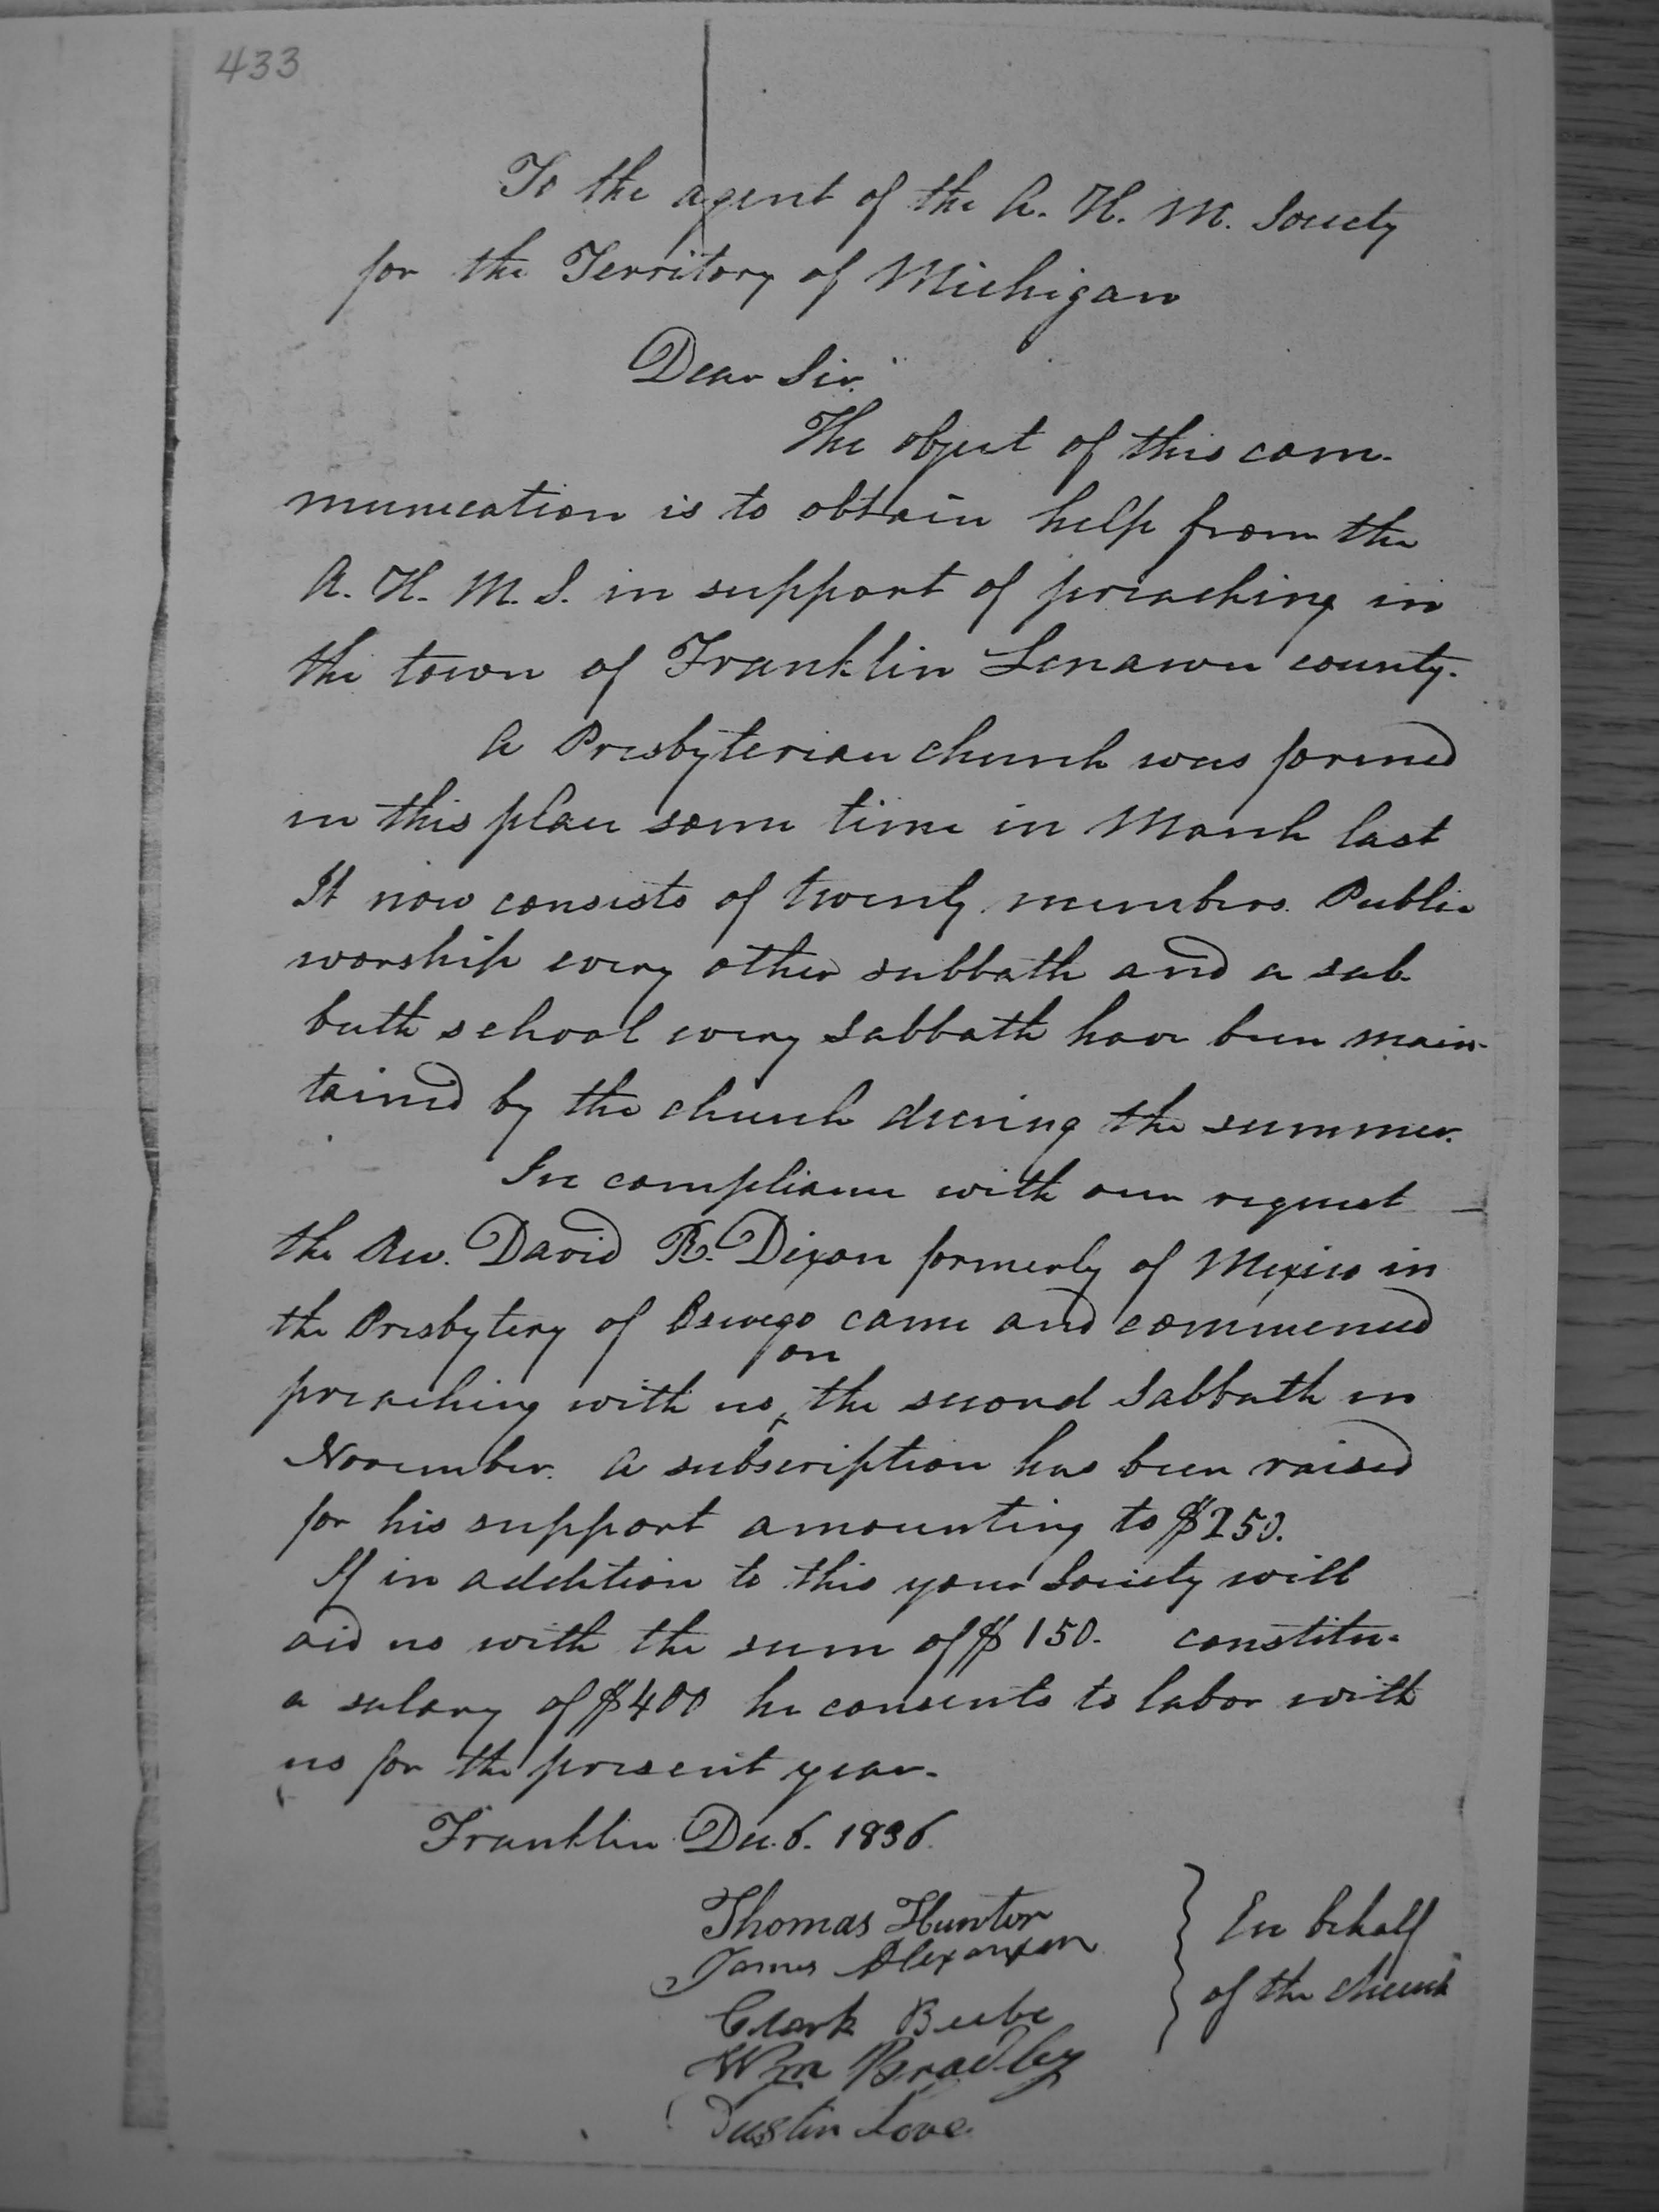 433
To the agent of the A. H. M. Society
for the Territory of Michigan
Dear Sir.
The object of this com-
munication is to obtain help from the
A. H. M. S. in support of preaching in
the town of Franklin Lenawee county.
A Presbyterian church was formed
in this place some time in March last
It now consists of twenty members. Public
worship every other sabbath and a sab
bath school every sabbath have been main-
tained by the church during the summer.
In compliance with our request
the Rev. David R. Dixon formerly of Mexico in
the Presbytery of Oswego came and commenced
on
preaching with us ‸ the second Sabbath in
November. A subscription has been raised
for his support amounting to $250.
If in addition to this your Society will
aid us with the sum of $150. constitu-
a salary of $400 he consents to labor with
us for the present year.
Franklin Dec. 6. 1836.
Thomas Hunter
James Alexander
Clark Beebe
Wm Bradley
Justin Love
} In behalf
of the church